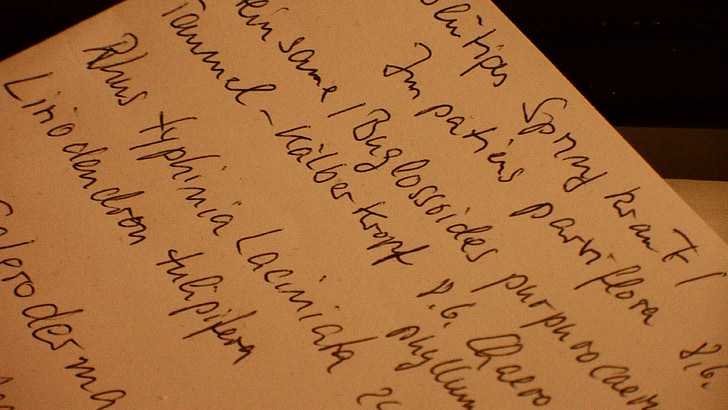 blütiges Springkraut /
Impatiens parviflora 8.6.
einsame / Buglossoides purpurocaer
Taumel-Kälberkropf 8.6. Chaero
phyllum
Rhus typhinia Laciniata
Liriodendron tulipifera
cleroderma